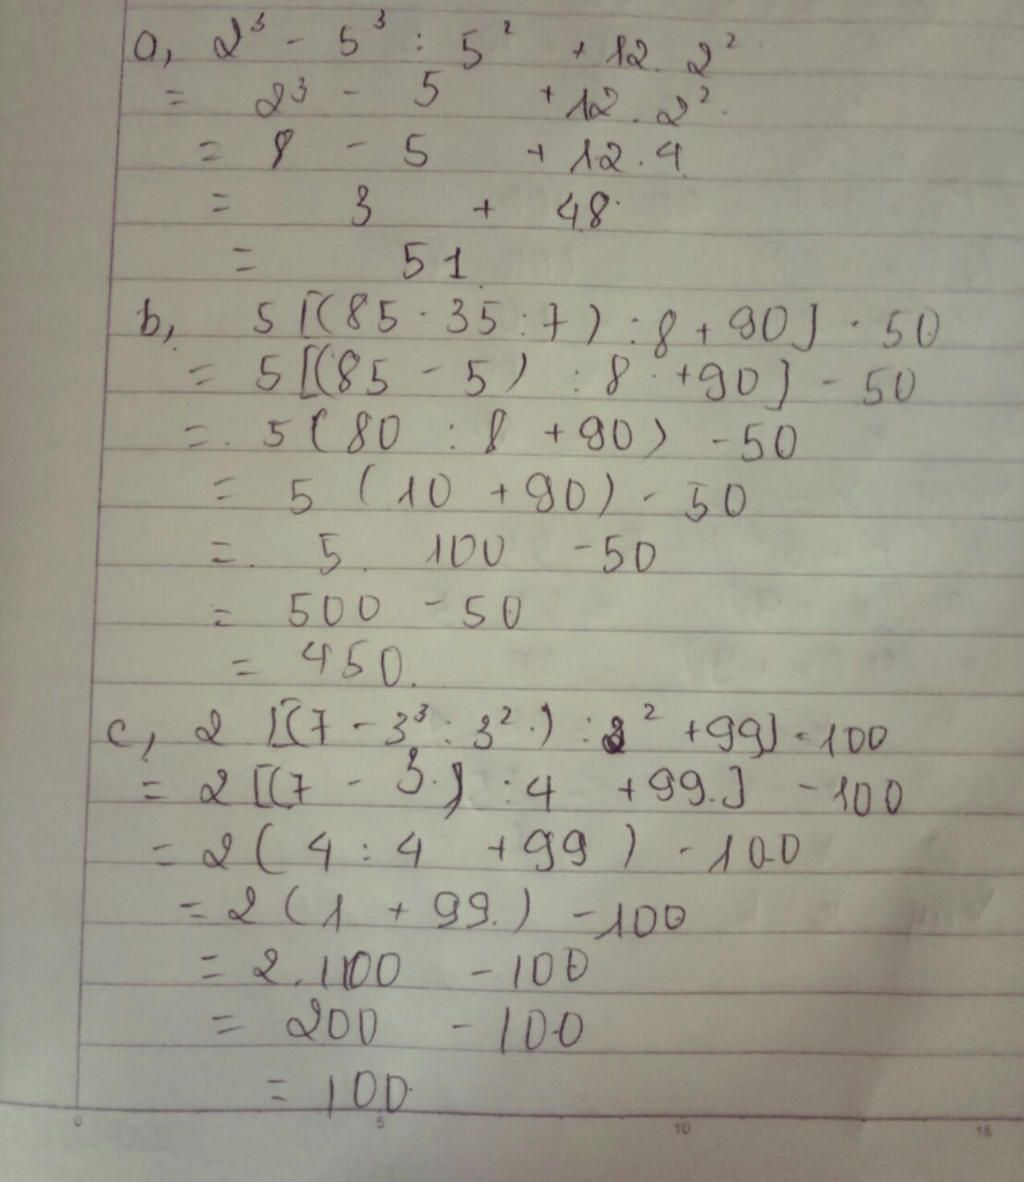 a, 2³ - 5³ : 5² + 12. 2²
= 2³ - 5 + 12 . 2²
= 8 - 5 + 12.4
= 3 + 48
= 51
b, 5 [(85 - 35 : 7) : 8 + 90] - 50
= 5 [(85 - 5) : 8 + 90] - 50
= 5 (80 : 8 + 90) - 50
= 5 (10 + 90) - 50
= 5. 100 - 50
= 500 - 50
= 450.
c, 2 [(7 - 3³ : 3²) : 2² + 99] - 100
= 2 [(7 - 3) : 4 + 99] - 100
= 2 ( 4 : 4 + 99 ) - 100
= 2 ( 1 + 99 ) - 100
= 2.100 - 100
= 200 - 100
= 100
0 5 10 15